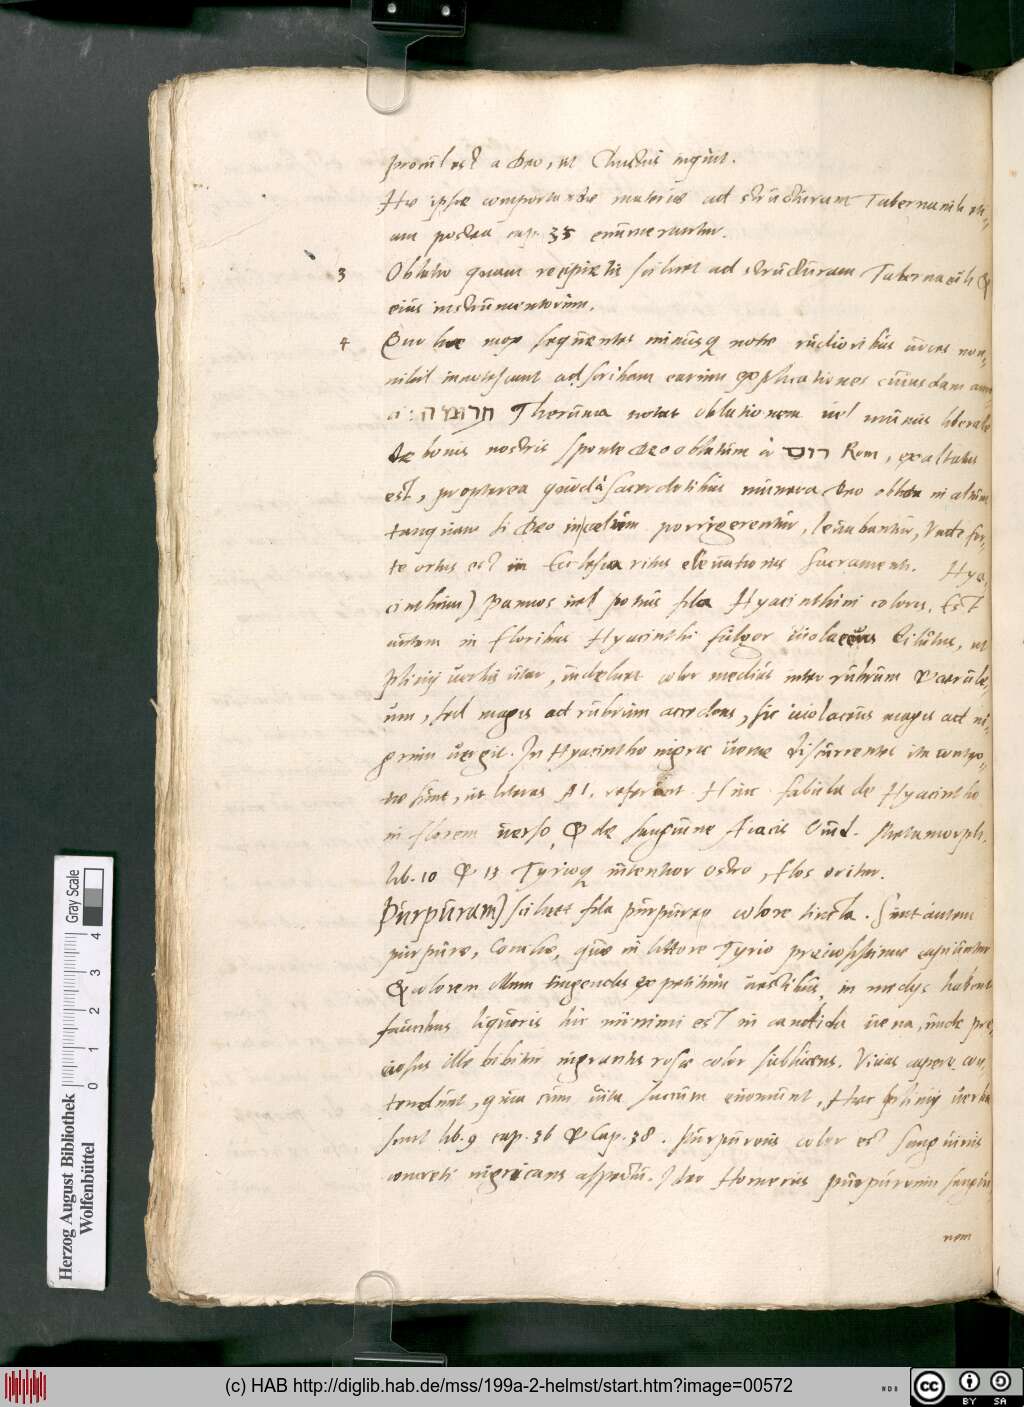 procul est a Deo, ut Christus inquit.
Hae ipsae comportandae materiae ad structuram Tabernaculi eti=
am postea cap. 35 enumerantur.
3 Oblatio quam recipietis scilicet ad structuram Tabernaculi &
eius instrumentorum.
4 Quo hae mox sequentes minusq notae rudioribus voces non=
nihil innotescant adscribam earum explicationes cuiusdam
תרומה Theruma notat oblationem vel munus liberale
de bonis nostris sponte Deo oblatum à רום Rom, exaltatus
est, propterea quòd à sacerdotibus munera Deo oblata in altum
tanquam si Deo in coelum porrigerentur, levabantur, Unde for=
te ortus est in Ecclesia ritus elevationis Sacramenti. Hya=
cinthum) Pannos vel potius fila Hyacinthini coloris. Est
autem in floribus Hyacinthi fulgor violaceus dilutus, ut
Plinij verbis utar, videlicet color medius inter rubrum & caerule=
um, sed magis ad rubrum accedens, sic violaceus magis ad ni=
grum vergit. In Hyacintho nigrae venae discurrentes ita
sunt, ut literas AI, referant Hinc fabula de Hyacintho
in florem verso, & de sanguine Aiacis Ovid. Metamorph.
lib. 10 & 13 Tyrioq nitentior ostro, flos oritur.
Purpuram) scilicet fila purpureo colore tincta. Sunt autem
purpurae, Conchae, quae in littore Tyrio preciosissimae capiuntur
& colorem illum tingendis expetitum vestibus, in medijs habent
faucibus liquoris hic minimi est in candida vena, unde pre=
ciosus ille bibitur nigrantis rosae color sublucens. Vivas capere con=
tendunt, quia cum vita succum evomunt, Haec Plinij verba
sunt lib. 9 cap. 36 & Cap. 38. Purpureus color est sanguinis
concreti nigricans aspectu. Ideo Homerus purpureum sangui
nem
Gray Scale
4
3
2
1
0
Herzog August Bibliothek
Wolfenbüttel
(c) HAB http://diglib.hab.de/mss/199a-2-helmst/start.htm?image=00572
cc BY SA